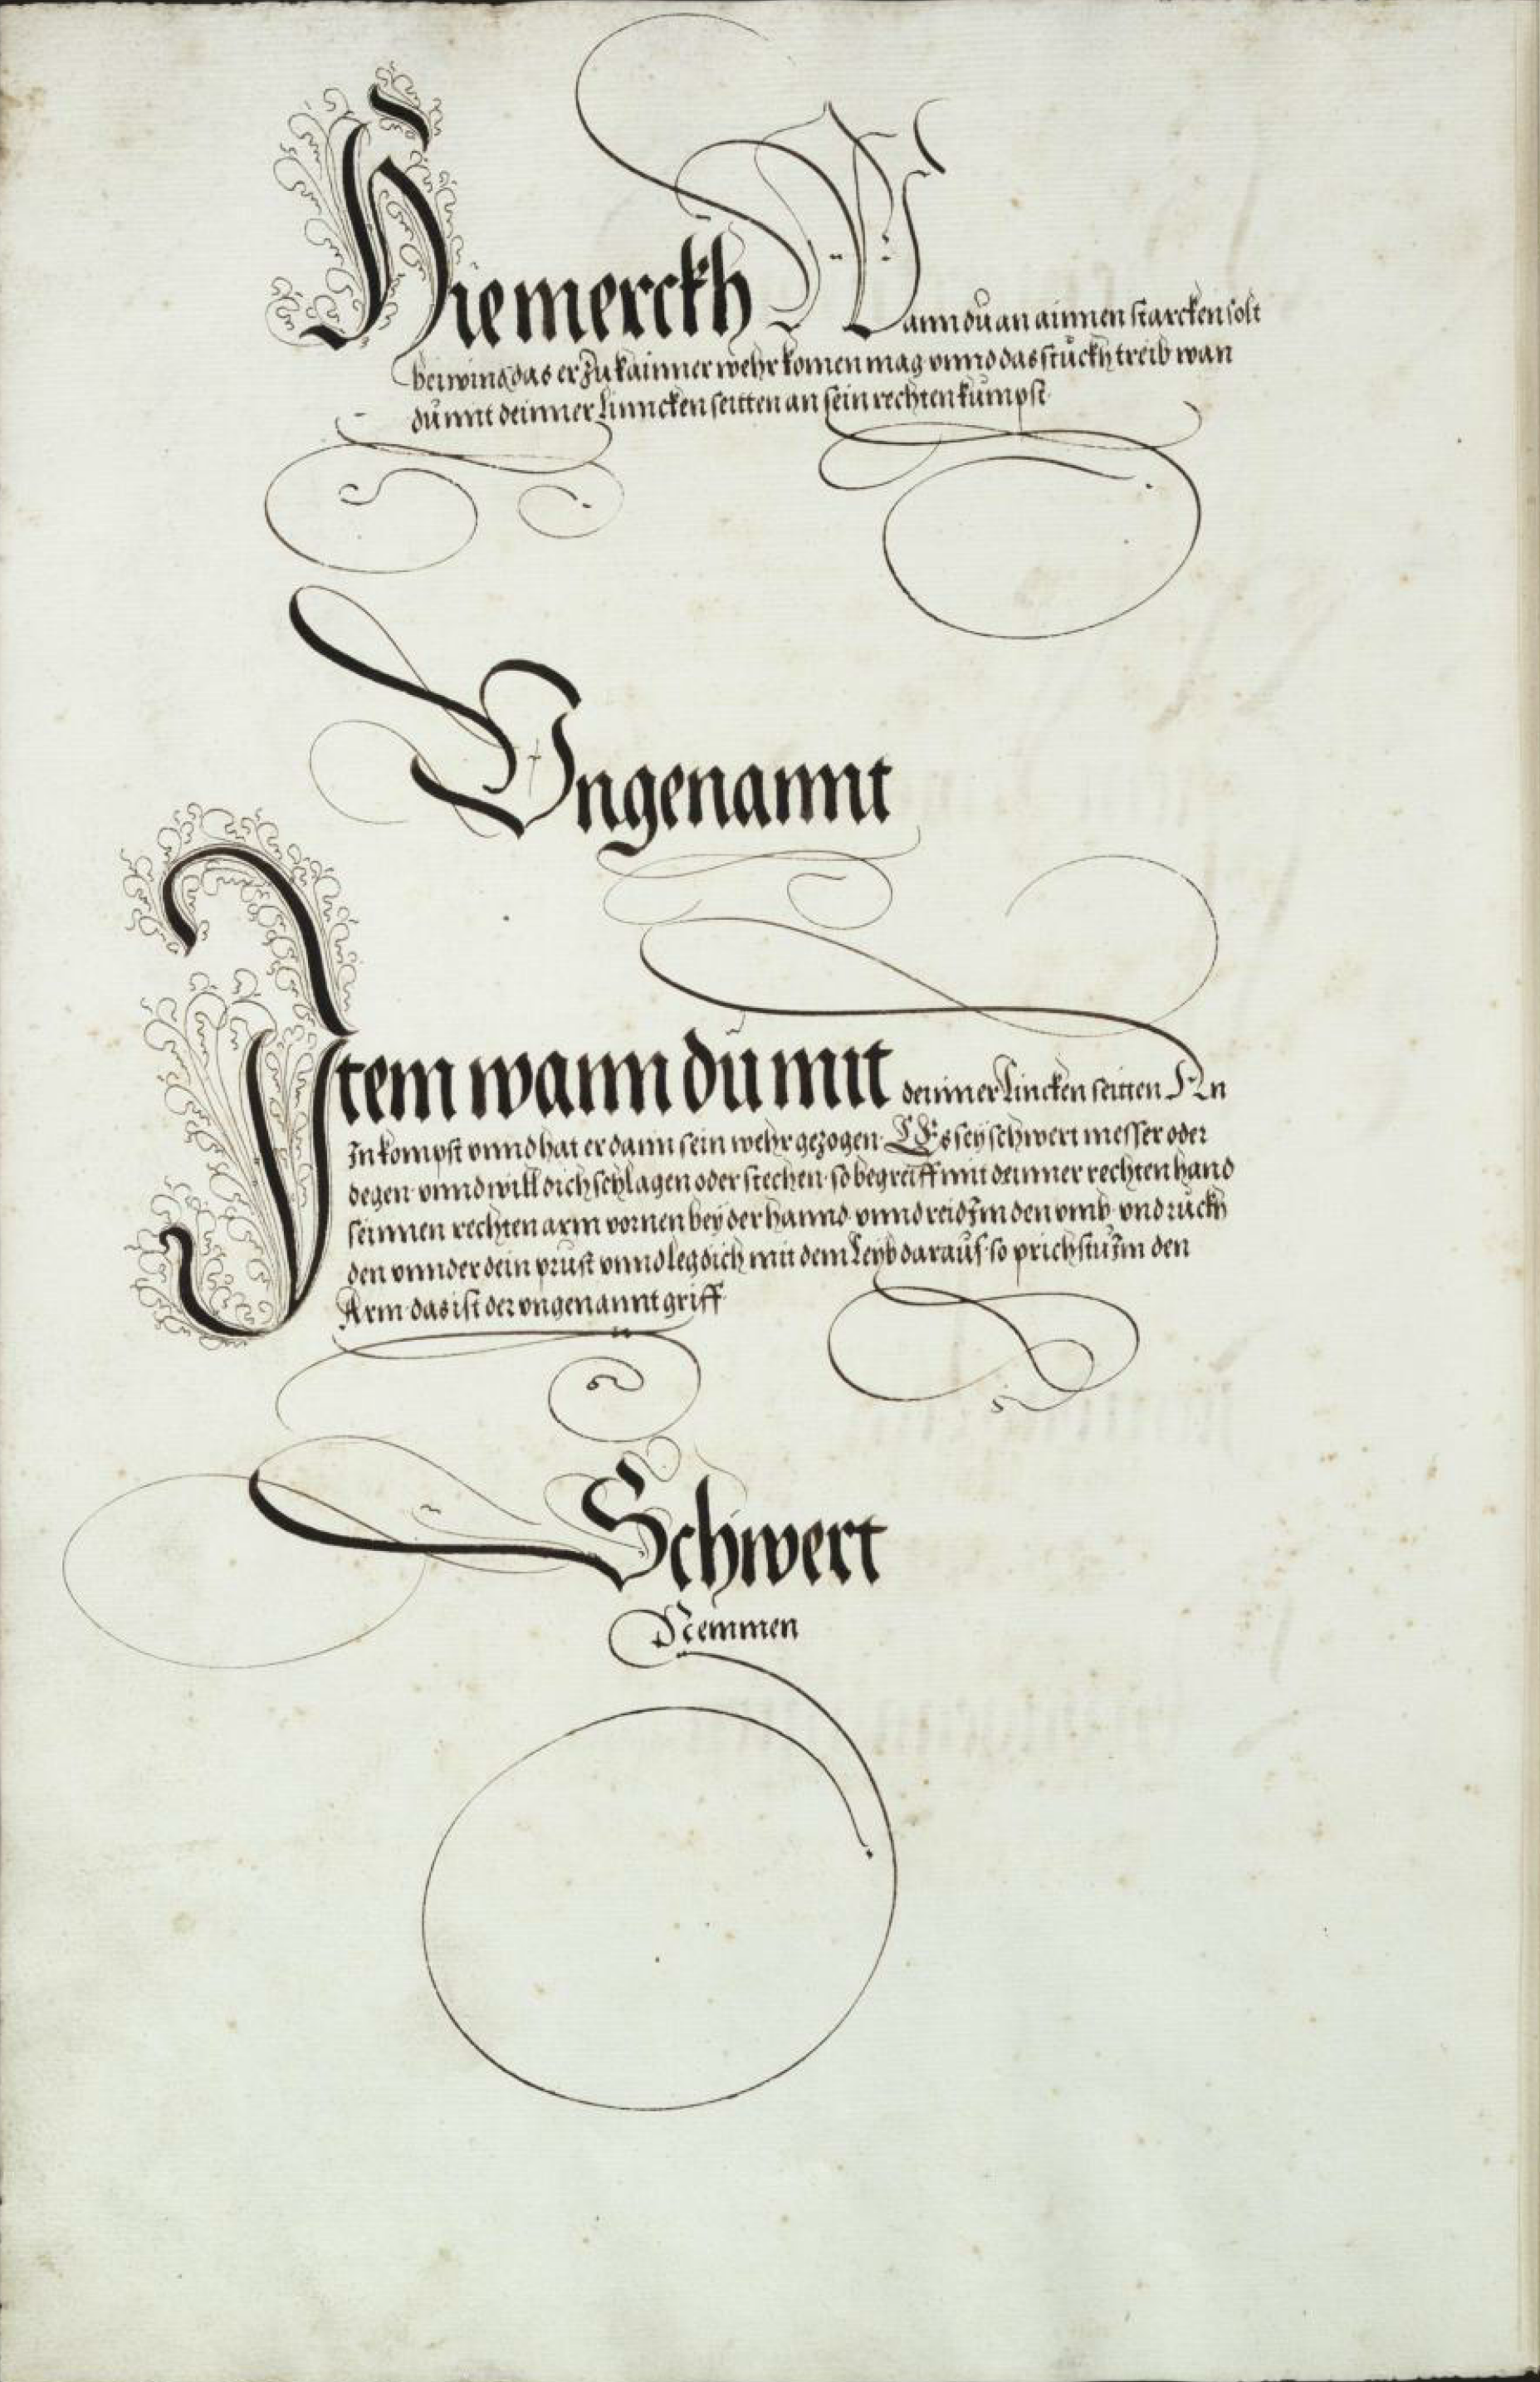 Hiemerckh Wann du an ainnen starcken solt
beiwind das er zu kainner wehr komen mag vnnd das stuckh treib wan
du mit deinner linncken seitten an sein rechten kumpst
Vngenannt
Item wann du mit deinner lincken seitten An
In kompst vnnd hat er dann sein wehr gezogen Es sey schwert messer oder
degen vnnd will dich schlagen oder stechen so begreiff mit deinner rechten hand
seinnen rechten arm vornen bey der hannd vnnd reid Im den vmb vnd ruckh
den vnnder dein prust vnnd leg dich mit dem Leyb darauf so prichstu Im den
Arm das ist der vngenannt griff
Schwert
Nemmen